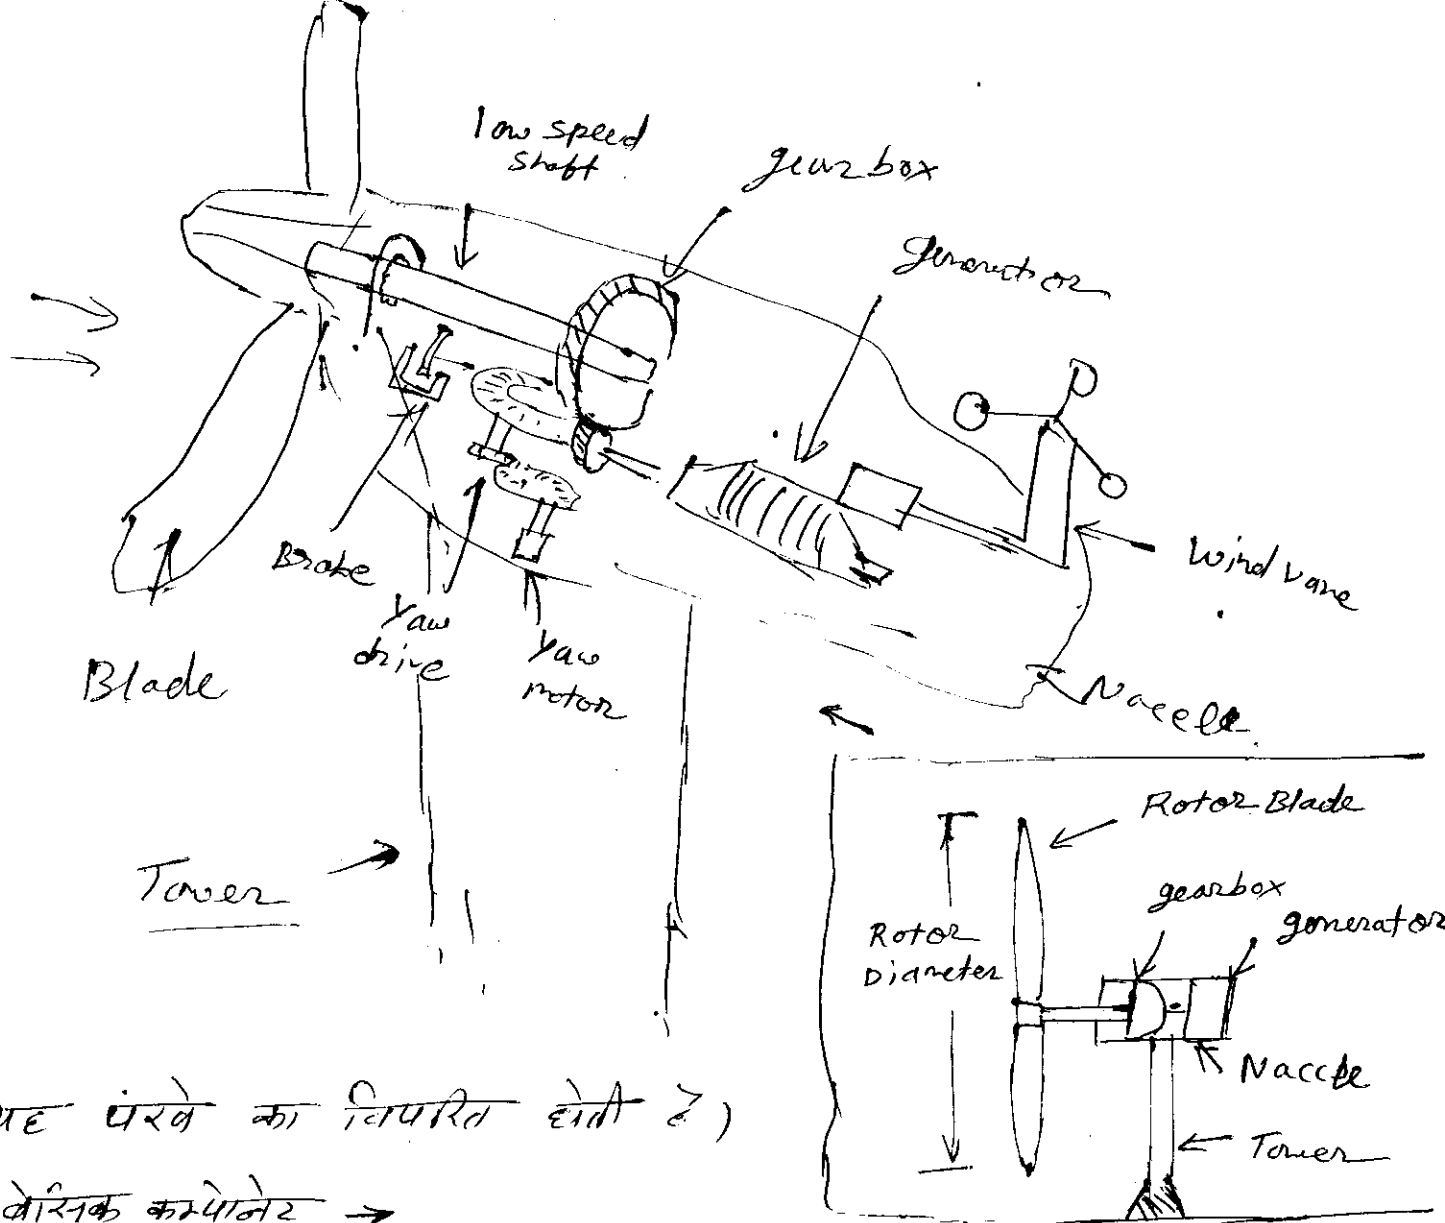 low speed
shaft
gearbox
generator
wind vane
Brake
Yaw
drive
Yaw
motor
Blade
Naccele
Tower
Rotor Blade
gearbox
generator
Rotor
Diameter
Naccele
Tower
यह पंखे का विपरित होती है)
बेसिक कम्पोनेट →